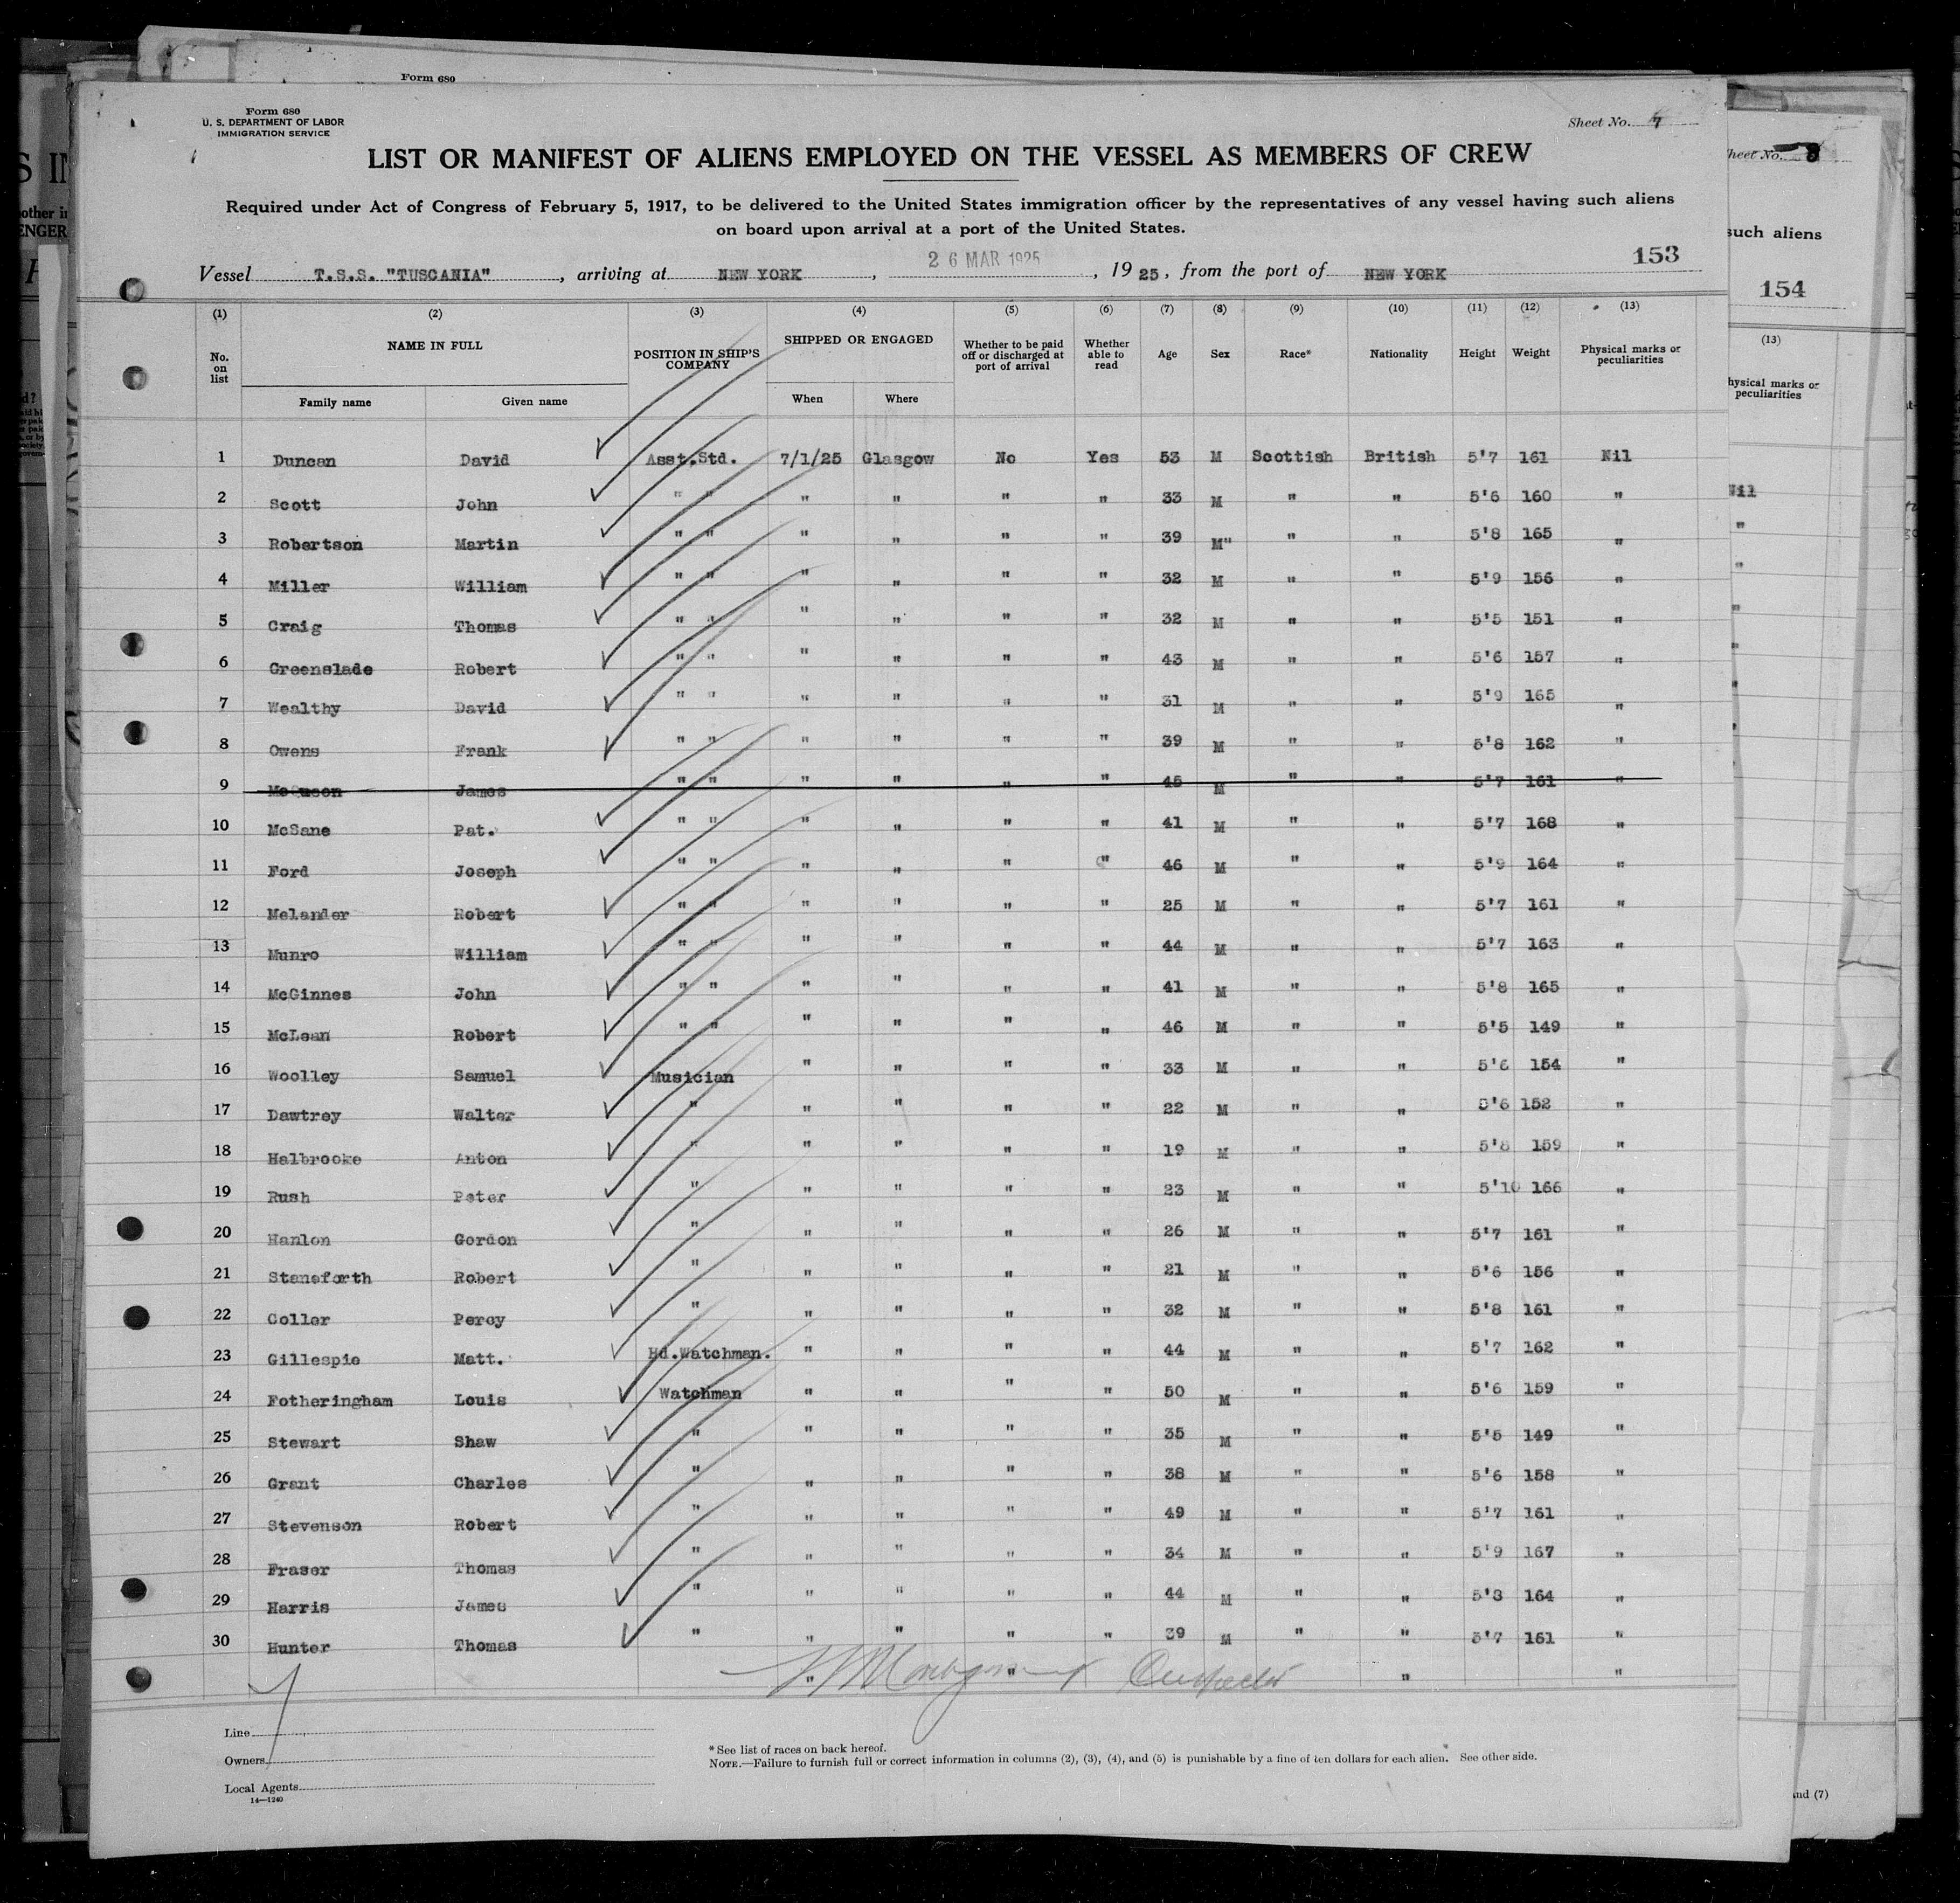 Form 680
Form 680
U. S. DEPARTMENT OF LABOR
IMMIGRATION SERVICE
Sheet No. 7
LIST OR MANIFEST OF ALIENS EMPLOYED ON THE VESSEL AS MEMBERS OF CREW
Required under Act of Congress of February 5, 1917, to be delivered to the United States immigration officer by the representatives of any vessel having such aliens
on board upon arrival at a port of the United States.
153
Vessel T.S.S. "TUSCANIA", arriving at NEW YORK, 26 MAR 1925, 1925, from the port of NEW YORK
(1) (2) (3) (4) (5) (6) (7) (8) (9) (10) (11) (12) (13)
No. on list NAME IN FULL POSITION IN SHIP'S COMPANY SHIPPED OR ENGAGED Whether to be paid off or discharged at port of arrival Whether able to read Age Sex Race* Nationality Height Weight Physical marks or peculiarities
Family name Given name When Where
1 Duncan David Asst.Std. 7/1/25 Glasgow No Yes 53 M Scottish British 5'7 161 Nil
2 Scott John " " " " " " 33 M " " 5'6 160 "
3 Robertson Martin " " " " " " 39 M" " " 5'8 165 "
4 Miller William " " " " " " 32 M " " 5'9 156 "
5 Craig Thomas " " " " " " 32 M " " 5'5 151 "
6 Greenslade Robert " " " " " " 43 M " " 5'6 157 "
7 Wealthy David " " " " " " 31 M " " 5'9 165 "
8 Owens Frank " " " " " " 39 M " " 5'8 162 "
9 James " " " " " " 45 M " " 5'7 161 "
10 McSane Pat. " " " " " " 41 M " " 5'7 168 "
11 Ford Joseph " " " " " " 46 M " " 5'9 164 "
12 Melander Robert " " " " " " 25 M " " 5'7 161 "
13 Munro William " " " " " " 44 M " " 5'7 163 "
14 McGinnes John " " " " " " 41 M " " 5'8 165 "
15 McLean Robert " " " " " " 46 M " " 5'5 149 "
16 Woolley Samuel Musician " " " " 33 M " " 5'6 154 "
17 Dawtrey Walter " " " " " 22 M " " 5'6 152 "
18 Halbrooke Anton " " " " " 19 M " " 5'8 159 "
19 Rush Peter " " " " " 23 M " " 5'10 166 "
20 Hanlon Gordon " " " " " 26 M " " 5'7 161 "
21 Staneforth Robert " " " " " 21 M " " 5'6 156 "
22 Coller Percy " " " " " 32 M " " 5'8 161 "
23 Gillespie Matt. Hd.Watchman. " " " " 44 M " " 5'7 162 "
24 Fotheringham Louis Watchman " " " " 50 M " " 5'6 159 "
25 Stewart Shaw " " " " " 35 M " " 5'5 149 "
26 Grant Charles " " " " " 38 M " " 5'6 158 "
27 Stevenson Robert " " " " " 49 M " " 5'7 161 "
28 Fraser Thomas " " " " " 34 M " " 5'9 167 "
29 Harris James " " " " " 44 M " " 5'8 164 "
30 Hunter Thomas " " " " " 39 M " " 5'7 161 "
" " " "
Line
Owners
Local Agents
14—1240
* See list of races on back hereof.
NOTE.—Failure to furnish full or correct information in columns (2), (3), (4), and (5) is punishable by a fine of ten dollars for each alien. See other side.
heet No. 8
such aliens
154
(13)
hysical marks or
peculiarities
Nil
and (7)